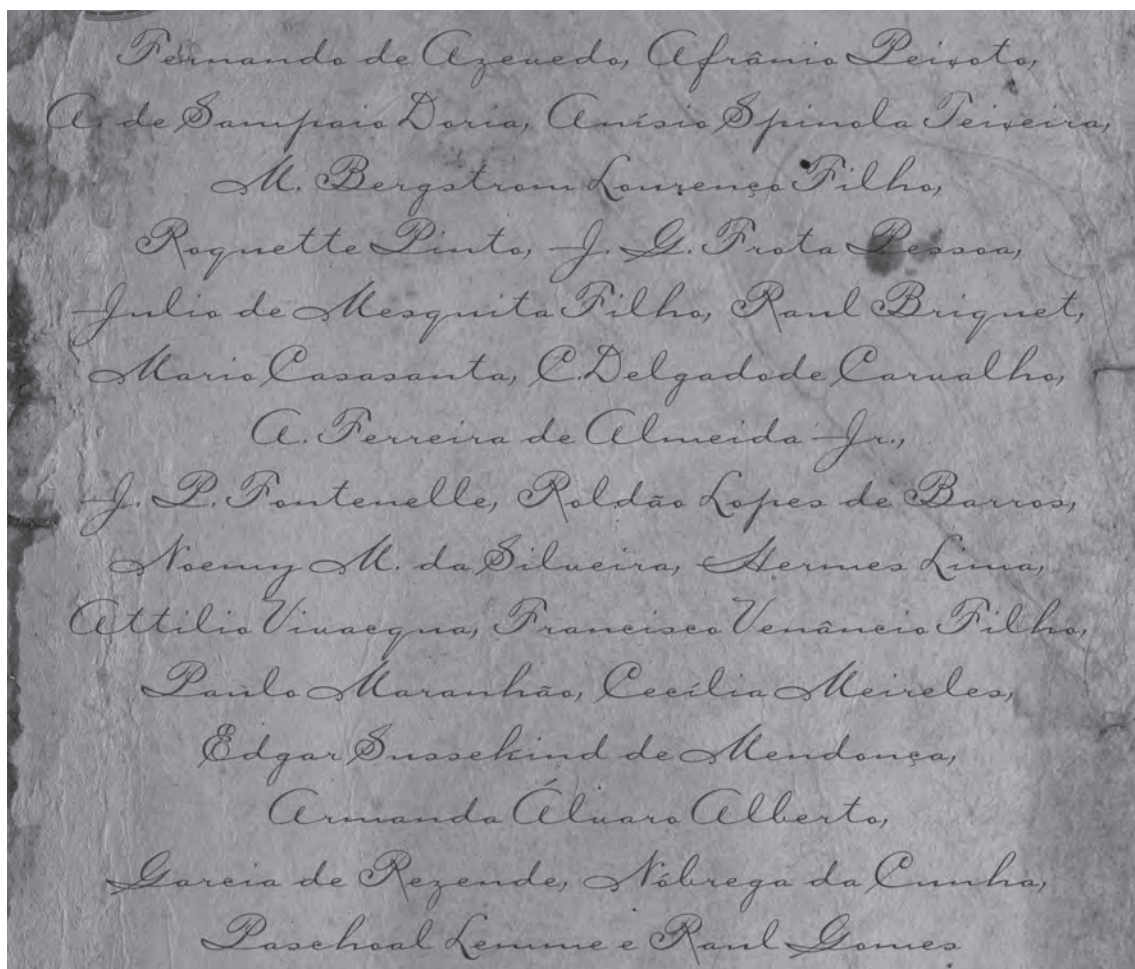 Fernando de Azevedo, Afrânio Peixoto,
A. de Sampaio Doria, Anísio Spinola Teixeira,
M. Bergstrom Lourenço Filho,
Roquette Pinto, J. G. Frota Pessoa,
Julio de Mesquita Filho, Raul Briquet,
Mario Casasanta, C. Delgado de Carvalho,
A. Ferreira de Almeida Jr.,
J. P. Fontenelle, Roldão Lopes de Barros,
Noemy M. da Silveira, Hermes Lima,
Attilio Vivacqua, Francisco Venâncio Filho,
Paulo Maranhão, Cecília Meireles,
Edgar Sussekind de Mendonça,
Armanda Álvaro Alberto,
Garcia de Rezende, Nóbrega da Cunha,
Paschoal Lemme e Raul Gomes